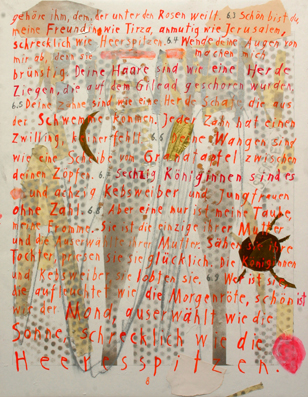 gehöre ihm, dem, der unter den Rosen weilt. 6.3 Schön bist du
meine Freundin wie Tirza, anmutig wie Jerusalem,
schrecklich wie Heerspitzen. 6.4 Wende deine Augen von
mir ab, denn sie machen mich
brünstig Deine Haare sind wie eine Herde
Ziegen, die auf dem Gilead geschoren wurden.
6.5 Deine Zähne sind wie eine Herde Schafe die aus
der Schwemme kommen, Jeder Zahn hat einen
Zwilling 6.6 Wangen sind
wie eine Scheibe vom Granatapfel zwischen
deinen Zöpfen. 6. Sechzig Königinnen sind es
und achzig Kebsweiber und Jungfrauen
ohne Zahl. 6.8 Aber eine nur ist meine Taube,
meine Fromme. Sie ist die einzige ihrer Mutter
und die Auserwählte ihrer Mutter. Sähen sie ihre
Töchter, priesen sie sie glücklich. Die Königinnen
und Kebsweiber sie lobten sie. 6.9 Wer ist sie,
die aufleuchte wie die Morgenröte, schön ist
wie der Mond, auserwählt wie die
Sonne, schrecklich wie die
Heeresspitzen.
8